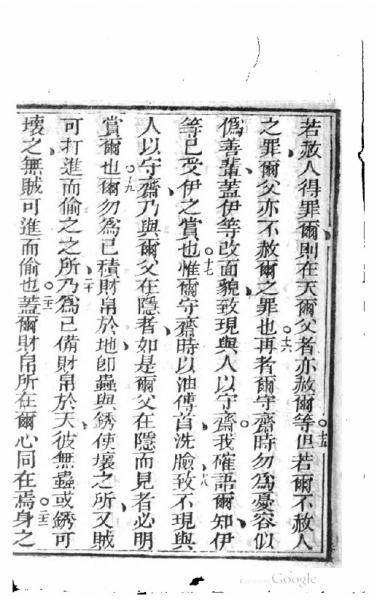 若赦人得罪爾則在天爾父者亦赦爾等十五但若爾不赦人
之罪爾父亦不赦爾之罪也十六再者爾守齋時勿為憂容似
僞善輩蓋伊等改面貌致現與人以守齋我確語爾知伊
等已受伊之賞也十七惟爾守齋時以油傅首洗臉十八致不現與
人以守齋乃與爾父在隱者如是爾父在隱而見者必明
賞爾也十九爾勿為己積財帛於地即蟲與銹使壞之所又賊
可打進而偷之之所二十乃為己備財帛於天彼無蟲或銹可
壞之無賊可進而偷也二一蓋爾財帛所在爾心同在焉二二身之
Google